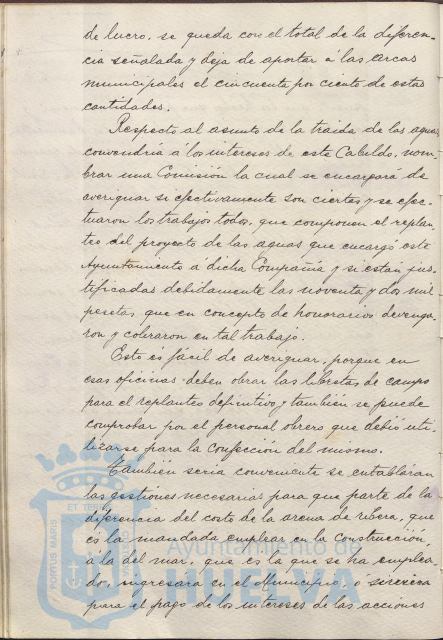 de lucro, se queda con el total de la diferen-
cia señalada y deja de aportar á las arcas
municipales el cincuenta por ciento de estas
cantidades.
Respecto al asunto de la traida de las aguas
convendría á los intereses de este Cabildo, nom-
brar una Comisión la cual se encargará de
averiguar si efectivamente son ciertas y se efec-
tuaron los trabajos todos, que componen el replan-
teo del proyecto de las aguas que encargó este
Ayuntamiento á dicha Compañia y si estan jus-
tificadas debidamente las noventa y dos mil
pesetas, que en concepto de honorarios devenga-
ron y cobraron en tal trabajo.
Esto es fácil de averiguar, porque en
esas oficinas deben obrar las libretas de campo
para el replanteo definitivo y también se puede
comprobar por el personal obrero que debió uti-
lizarse para la confección del mismo.
También sería conveniente se entablaran
las gestiones necesarias para que parte de la
diferencia del costo de la arena de ribera, que
es la mandada emplear en la Construcción,
á la del mar, que es la que se ha emplea-
do, ingresara en el Municipio, o sirviera
para el pago de los intereses de las acciones
PORTUS MARIS
ET TERRE
Ayuntamiento de
HUELVA